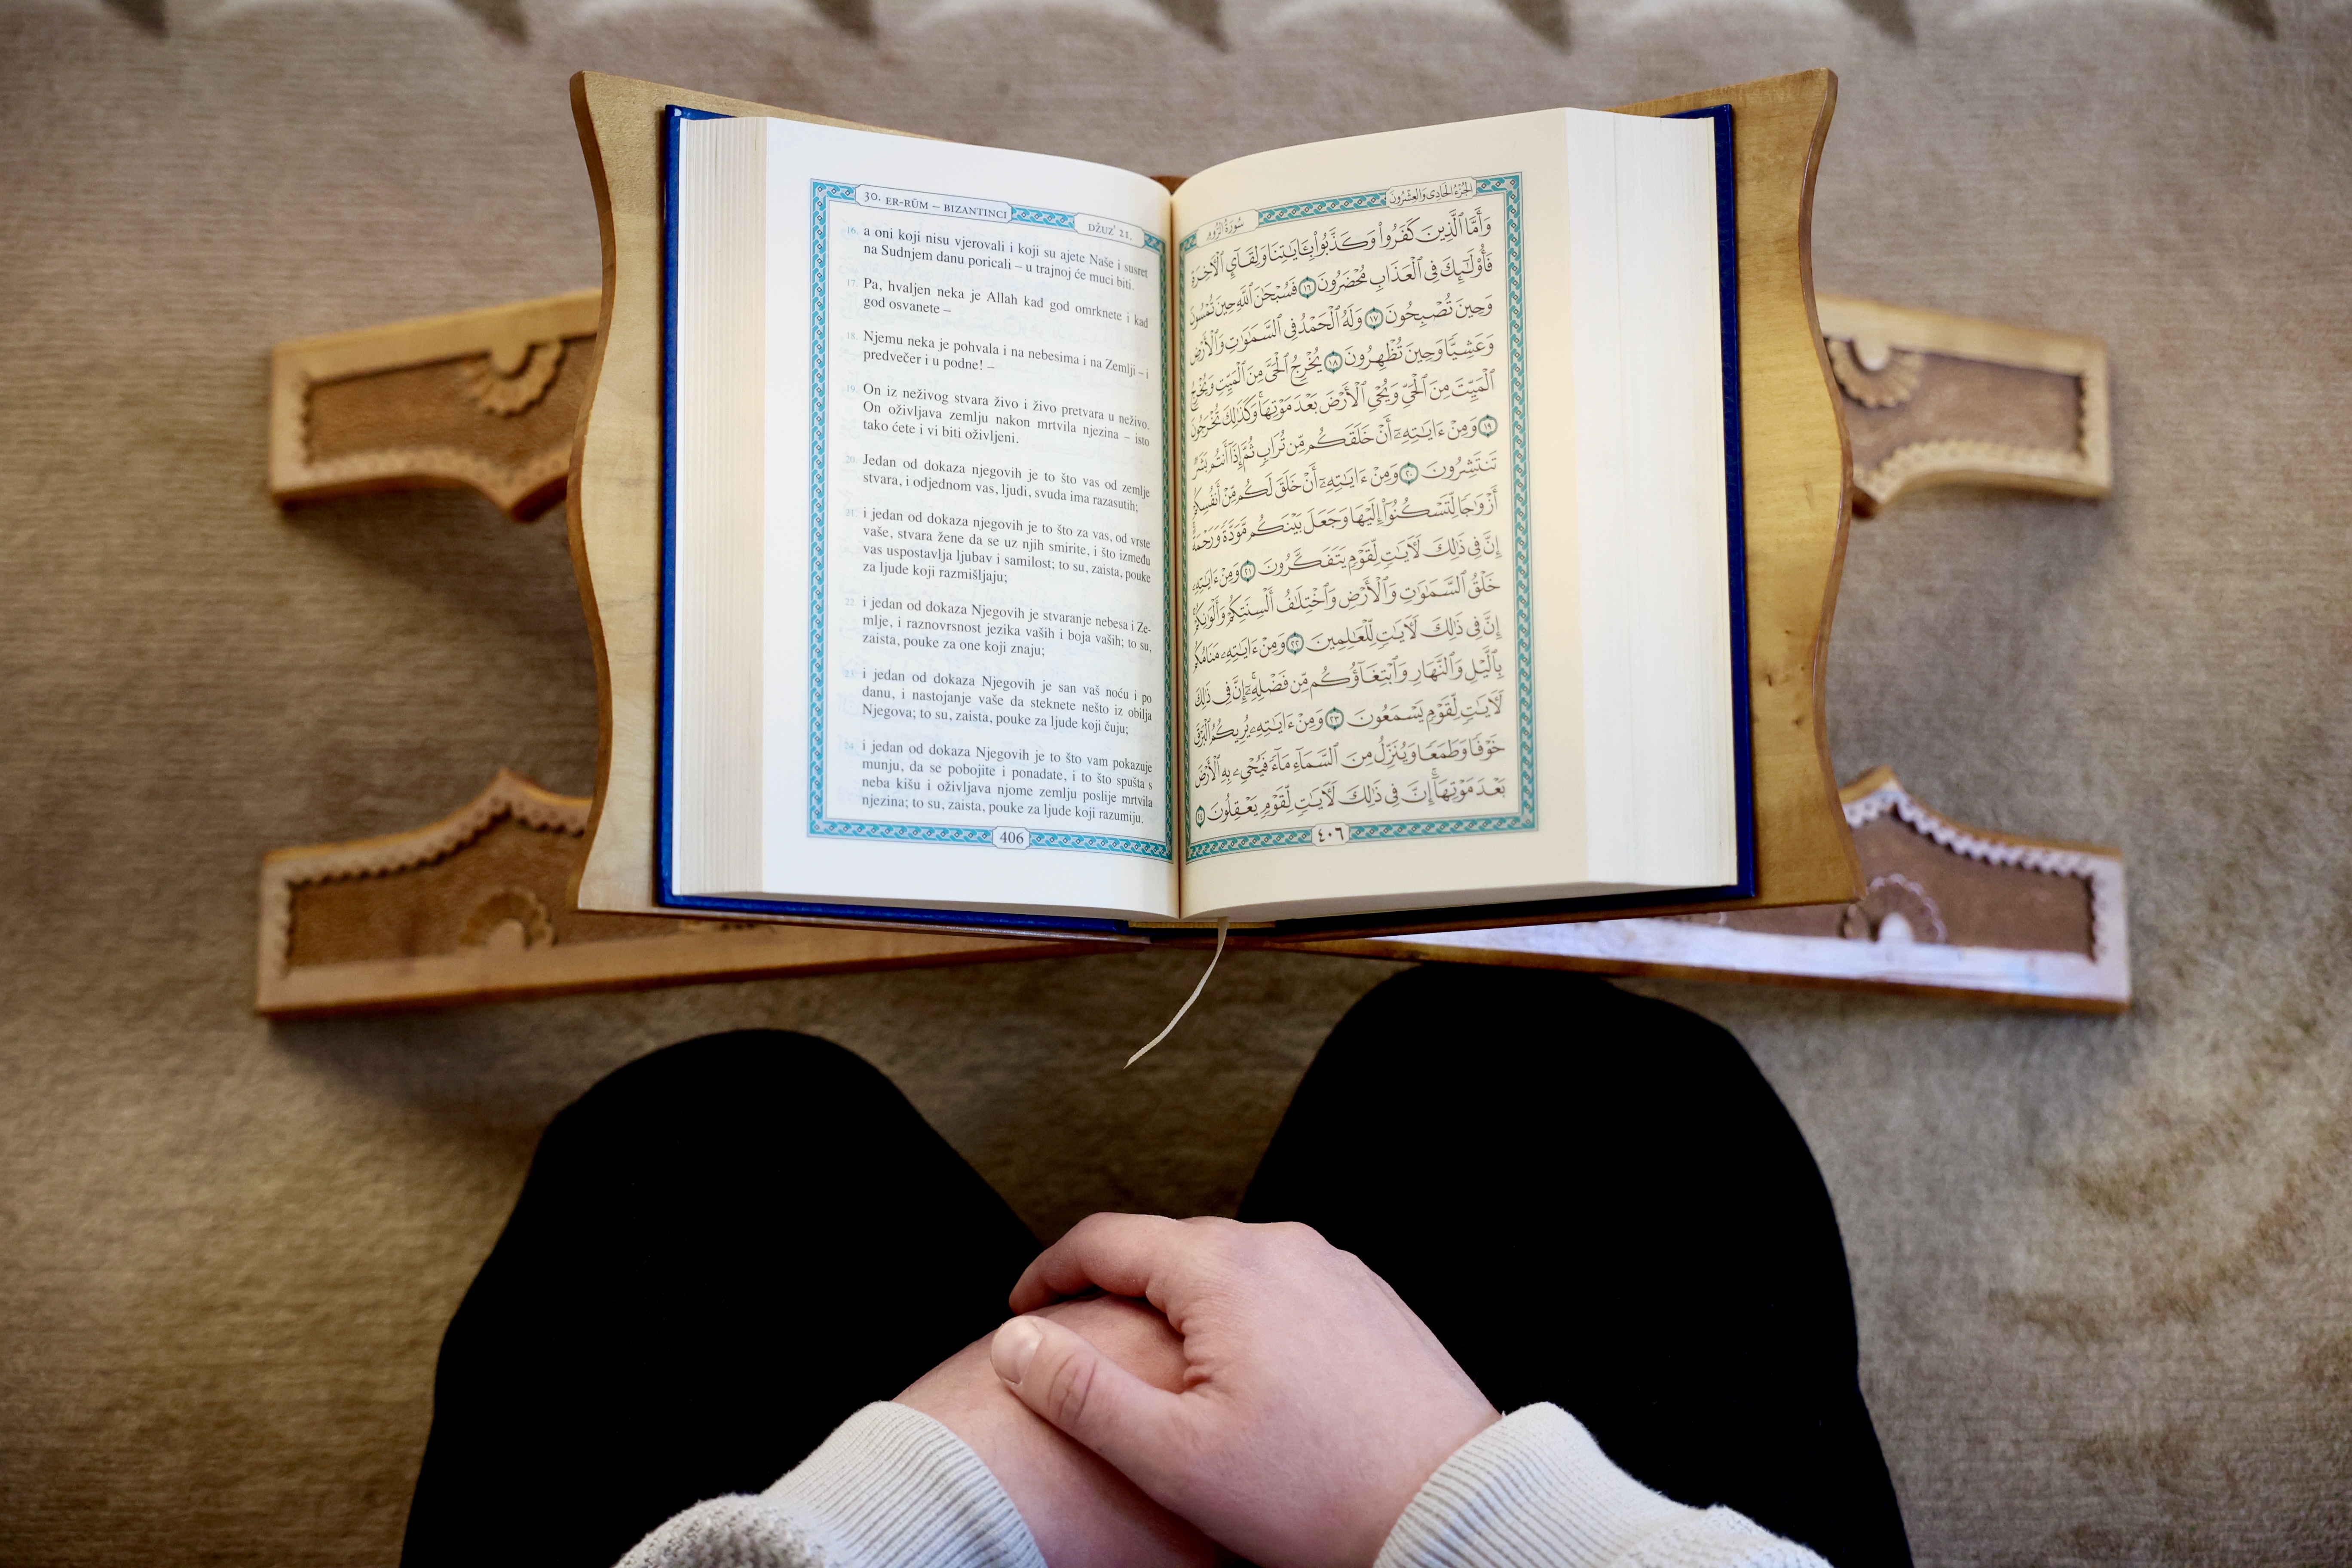 30. ER-RŪM – BIZANTINCI
DŽUZ' 21.
16. a oni koji nisu vjerovali i koji su ajete Naše i susret
na Sudnjem danu poricali – u trajnoj će muci biti.
17. Pa, hvaljen neka je Allah kad god omrknete i kad
god osvanete –
18. Njemu neka je pohvala i na nebesima i na Zemlji – i
predvečer i u podne! –
19. On iz neživog stvara živo i živo pretvara u neživo.
On oživljava zemlju nakon mrtvila njezina – isto
tako ćete i vi biti oživljeni.
20. Jedan od dokaza njegovih je to što vas od zemlje
stvara, i odjednom vas, ljudi, svuda ima razasutih;
21. i jedan od dokaza njegovih je to što za vas, od vrste
vaše, stvara žene da se uz njih smirite, i što između
vas uspostavlja ljubav i samilost; to su, zaista, pouke
za ljude koji razmišljaju;
22. i jedan od dokaza Njegovih je stvaranje nebesa i Ze-
mlje, i raznovrsnost jezika vaših i boja vaših; to su,
zaista, pouke za one koji znaju;
23. i jedan od dokaza Njegovih je san vaš noću i po
danu, i nastojanje vaše da steknete nešto iz obilja
Njegova; to su, zaista, pouke za ljude koji čuju;
24. i jedan od dokaza Njegovih je to što vam pokazuje
munju, da se pobojite i ponadate, i to što spušta s
neba kišu i oživljava njome zemlju poslije mrtvila
njezina; to su, zaista, pouke za ljude koji razumiju.
406
الجُزْءُ الحَادِى وَالعِشْرُونَ
سُورَةُ الرُّومِ
وَأَمَّا ٱلَّذِينَ كَفَرُوا۟ وَكَذَّبُوا۟ بِـَٔايَـٰتِنَا وَلِقَآئِ ٱلْـَٔاخِرَةِ
فَأُو۟لَـٰٓئِكَ فِى ٱلْعَذَابِ مُحْضَرُونَ ١٦ فَسُبْحَـٰنَ ٱللَّهِ حِينَ تُمْسُونَ
وَحِينَ تُصْبِحُونَ ١٧ وَلَهُ ٱلْحَمْدُ فِى ٱلسَّمَـٰوَٰتِ وَٱلْأَرْضِ
وَعَشِيًّا وَحِينَ تُظْهِرُونَ ١٨ يُخْرِجُ ٱلْحَىَّ مِنَ ٱلْمَيِّتِ وَيُخْرِجُ
ٱلْمَيِّتَ مِنَ ٱلْحَىِّ وَيُحْىِ ٱلْأَرْضَ بَعْدَ مَوْتِهَا ۚ وَكَذَٰلِكَ تُخْرَجُونَ
١٩ وَمِنْ ءَايَـٰتِهِۦٓ أَنْ خَلَقَكُم مِّن تُرَابٍ ثُمَّ إِذَآ أَنتُم بَشَرٌ
تَنتَشِرُونَ ٢٠ وَمِنْ ءَايَـٰتِهِۦٓ أَنْ خَلَقَ لَكُم مِّنْ أَنفُسِكُمْ
أَزْوَٰجًا لِّتَسْكُنُوٓا۟ إِلَيْهَا وَجَعَلَ بَيْنَكُم مَّوَدَّةً وَرَحْمَةً ۚ
إِنَّ فِى ذَٰلِكَ لَـَٔايَـٰتٍ لِّقَوْمٍ يَتَفَكَّرُونَ ٢١ وَمِنْ ءَايَـٰتِهِۦ
خَلْقُ ٱلسَّمَـٰوَٰتِ وَٱلْأَرْضِ وَٱخْتِلَـٰفُ أَلْسِنَتِكُمْ وَأَلْوَٰنِكُمْ ۚ
إِنَّ فِى ذَٰلِكَ لَـَٔايَـٰتٍ لِّلْعَـٰلِمِينَ ٢٢ وَمِنْ ءَايَـٰتِهِۦ مَنَامُكُم
بِٱلَّيْلِ وَٱلنَّهَارِ وَٱبْتِغَآؤُكُم مِّن فَضْلِهِۦٓ ۚ إِنَّ فِى ذَٰلِكَ
لَـَٔايَـٰتٍ لِّقَوْمٍ يَسْمَعُونَ ٢٣ وَمِنْ ءَايَـٰتِهِۦ يُرِيكُمُ ٱلْبَرْقَ
خَوْفًا وَطَمَعًا وَيُنَزِّلُ مِنَ ٱلسَّمَآءِ مَآءً فَيُحْىِۦ بِهِ ٱلْأَرْضَ
بَعْدَ مَوْتِهَآ ۚ إِنَّ فِى ذَٰلِكَ لَـَٔايَـٰتٍ لِّقَوْمٍ يَعْقِلُونَ ٢٤
٤٠٦